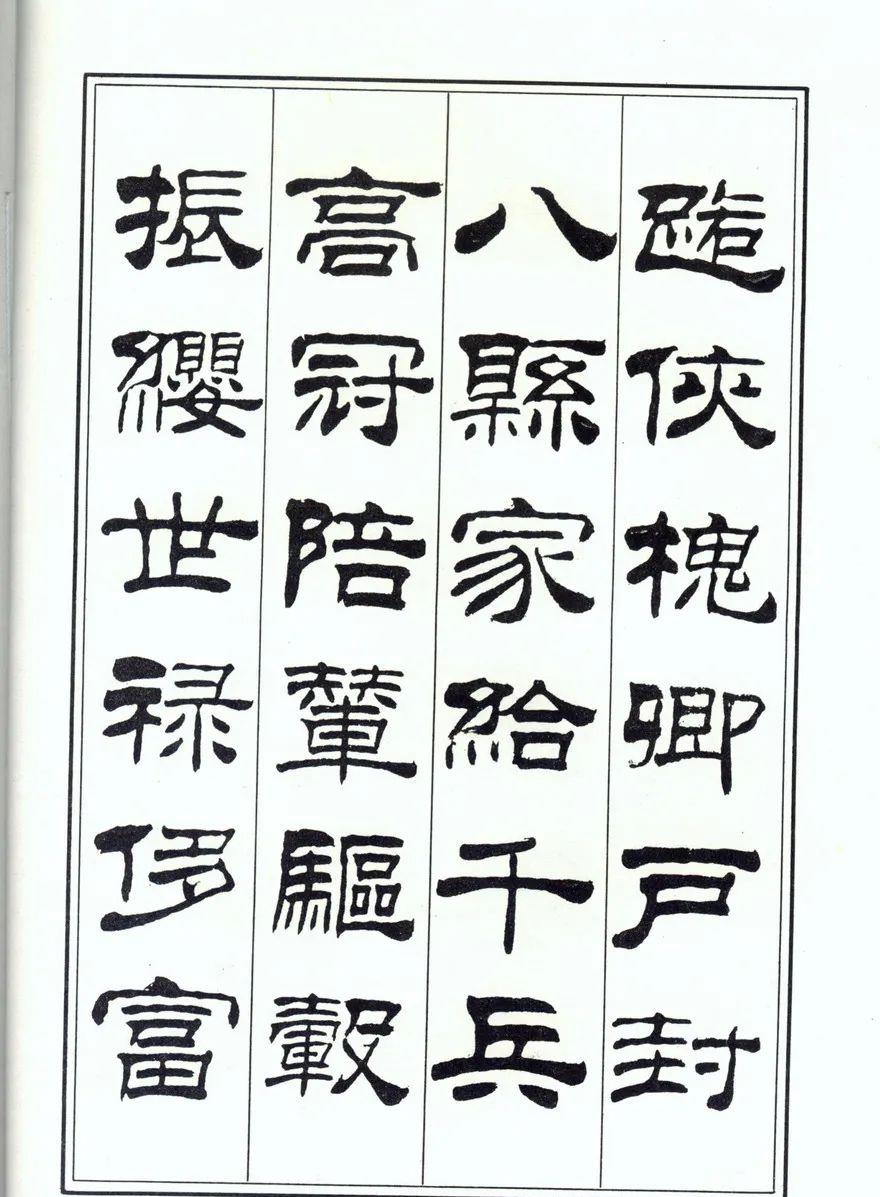 路俠槐卿戶封
八縣家給千兵
高冠陪輦驅轂
振纓世禄侈富